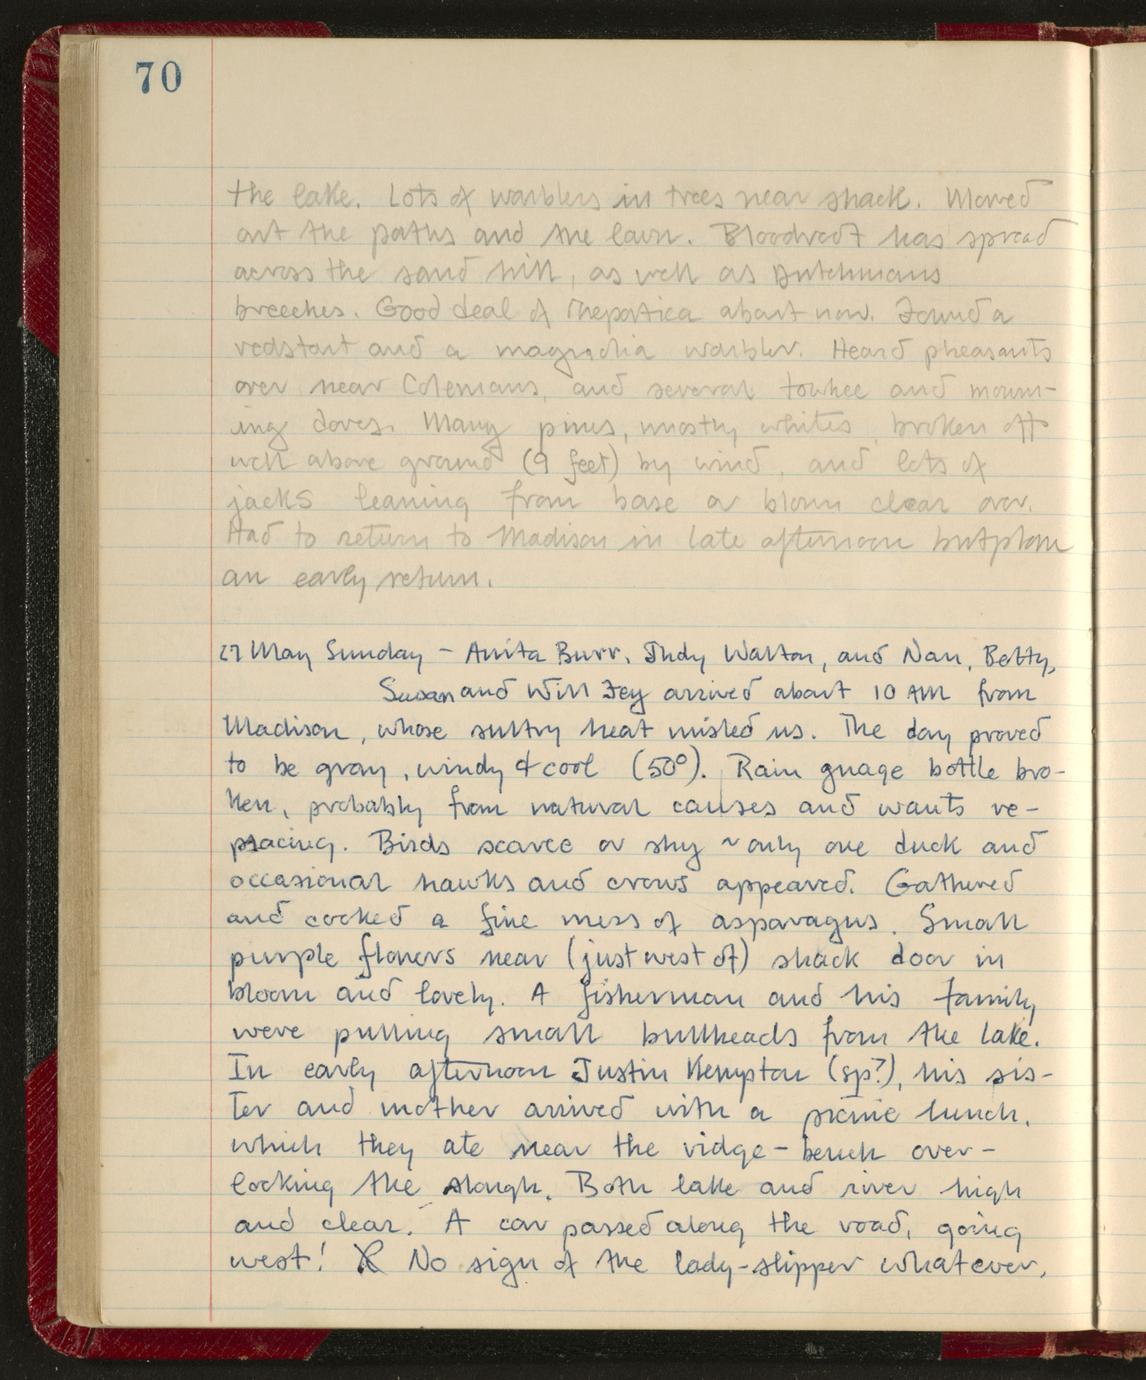 70
the lake. Lots of warblers in trees near shack. Mowed
out the paths and the lawn. Bloodroot has spread
across the sand hill, as well as Dutchmans
breeches. Good deal of Hepatica about now. Found a
redstart and a magnolia warbler. Heard pheasants
over near Colemans, and several towhee and mourn-
ing doves. Many pines, mostly whites, broken off
well above ground (9 feet) by wind, and lots of
jacks leaning from base or blown clear over.
Had to return to Madison in late afternoon but plan
an early return.
27 May Sunday – Anita Burr, Judy Walton, and Nan, Betty,
Susan and Will Fey arrived about 10 AM from
Madison, whose sultry heat misled us. The day proved
to be gray, windy & cool (50°). Rain guage bottle bro-
ken, probably from natural causes and wants re-
placing. Birds scarce or shy ~ only one duck and
occasional hawks and crows appeared. Gathered
and cooked a fine mess of asparagus. Small
purple flowers near (just west of) shack door in
bloom and lovely. A fisherman and his family
were pulling small bullheads from the lake.
In early afternoon Justin Kempton (sp?), his sis-
ter and mother arrived with a picnic lunch,
which they ate near the ridge-bench over-
looking the slough. Both lake and river high
and clear. A car passed along the road, going
west! No sign of the lady-slipper whatever,